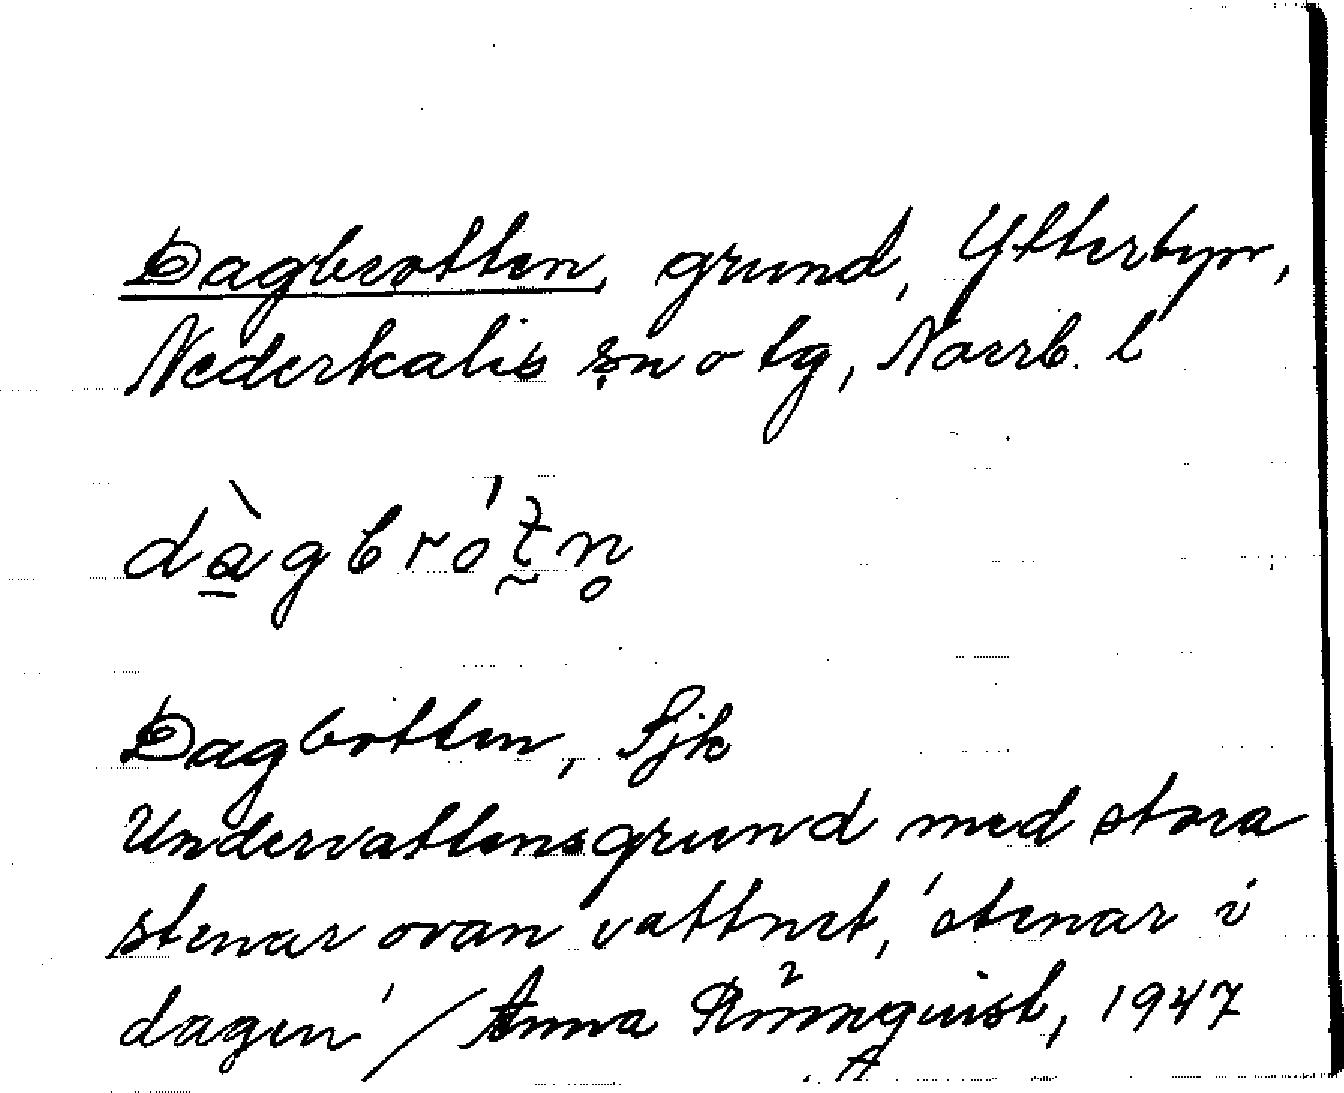 Dagbrotten, grund, Ytterbyn,
Nederkalix sn o tg, Norrb. l
dàgbrótn̥
Dagbotten, Sjk
Undervattensgrund med stora
stenar ovan vattnet, 'stenar i
dagen' / Anna Rönnquist, 1947